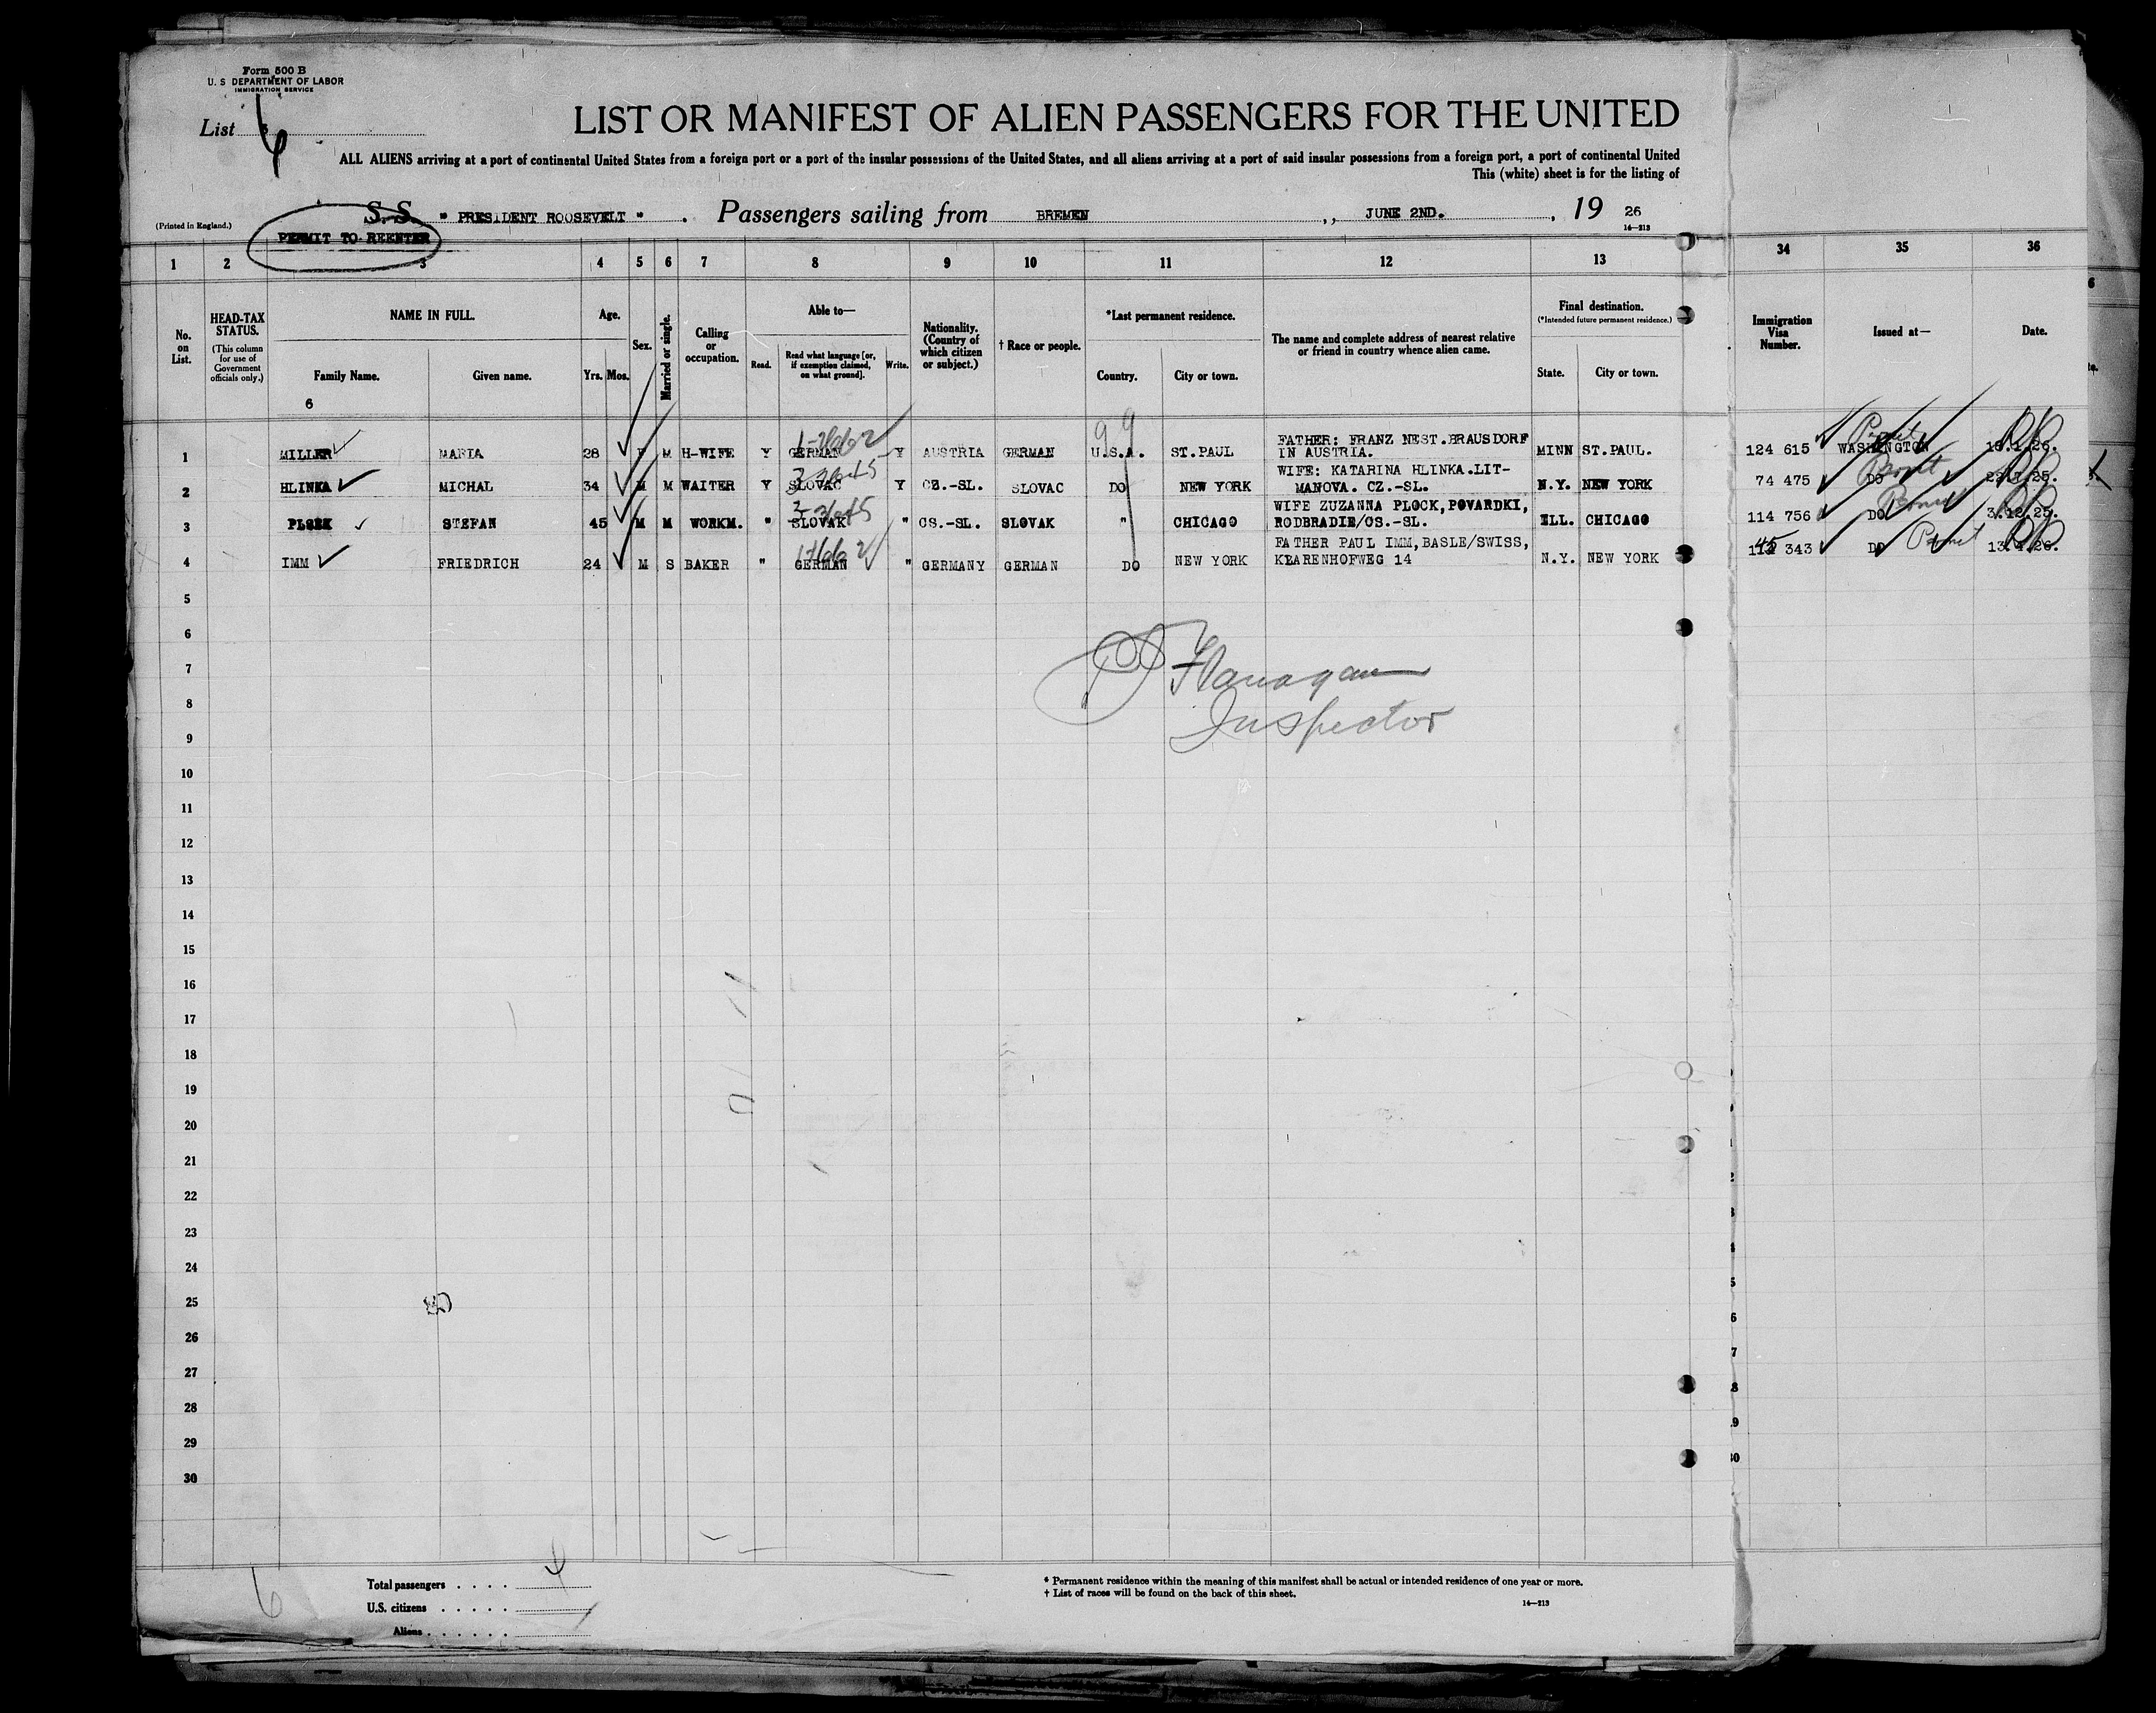 Form 500 B
U. S DEPARTMENT OF LABOR
IMMIGRATION SERVICE
List 6
LIST OR MANIFEST OF ALIEN PASSENGERS FOR THE UNITED
ALL ALIENS arriving at a port of continental United States from a foreign port or a port of the insular possessions of the United States, and all aliens arriving at a port of said insular possessions from a foreign port, a port of continental United
This (white) sheet is for the listing of
(Printed in England.)
S. S. " PRESIDENT ROOSEVELT " . Passengers sailing from BREMEN , , JUNE 2ND. , 19 26
14—213
PERMIT TO REENTER
1 2 3 4 5 6 7 8 9 10 11 12 13 34 35 36
No. on List.
HEAD-TAX STATUS.
(This column for use of Government officials only.)
NAME IN FULL.
Family Name. Given name.
6
Age.
Yrs. Mos.
Sex.
Married or single.
Calling or occupation.
Able to—
Read. Read what language [or, if exemption claimed, on what ground]. Write.
Nationality. (Country of which citizen or subject.)
† Race or people.
*Last permanent residence.
Country. City or town.
The name and complete address of nearest relative or friend in country whence alien came.
Final destination.
(*Intended future permanent residence.)
State. City or town.
Immigration Visa Number.
Issued at—
Date.
1 MILLER MARIA 28 F M H-WIFE Y GERMAN Y AUSTRIA GERMAN U.S.A. ST.PAUL FATHER: FRANZ NEST.BRAUSDORF IN AUSTRIA. MINN ST.PAUL. 124 615 WASHINGTON Permit
2 HLINKA MICHAL 34 M M WAITER Y SLOVAC Y CZ.-SL. SLOVAC DO NEW YORK WIFE: KATARINA HLINKA.LIT-MANOVA. CZ.-SL. N.Y. NEW YORK 74 475 DO Permit
3 STEFAN 45 M M WORKM. " SLOVAK " CS.-SL. SLOVAK " CHICAGO WIFE ZUZANNA PLOCK,POVARDKI, RODBRADIE/CS.-SL. ILL. CHICAGO 114 756 DO Permit 3.12.25.
4 IMM FRIEDRICH 24 M S BAKER " GERMAN " GERMANY GERMAN DO NEW YORK FATHER PAUL IMM,BASLE/SWISS, KLARENHOFWEG 14 N.Y. NEW YORK 343 DO Permit
5
6
7
8
9
10
11
12
13
14
15
16
17
18
19
20
21
22
23
24
25
26
27
28
29
30
Flanagan
Inspector
6
Total passengers . . . . 4
U.S. citizens . . . . .
Aliens . . . . . .
* Permanent residence within the meaning of this manifest shall be actual or intended residence of one year or more.
† List of races will be found on the back of this sheet.
14—213